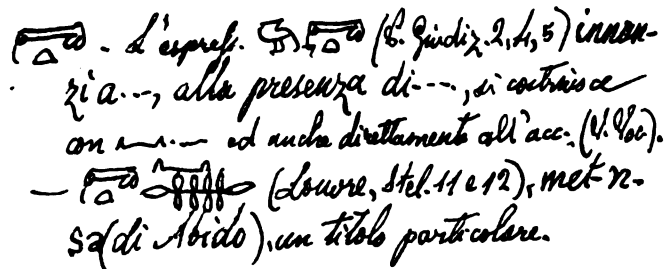 - L'espress. (P. Giudiz. 2, 4, 5) innan-
zi a..., alla presenza di...., si costruisce
con ed anche direttamente coll'acc. (V. Voc).
— (Louvre, Stel. 11 e 12), met-n-
sa (di Abido), un titolo particolare.